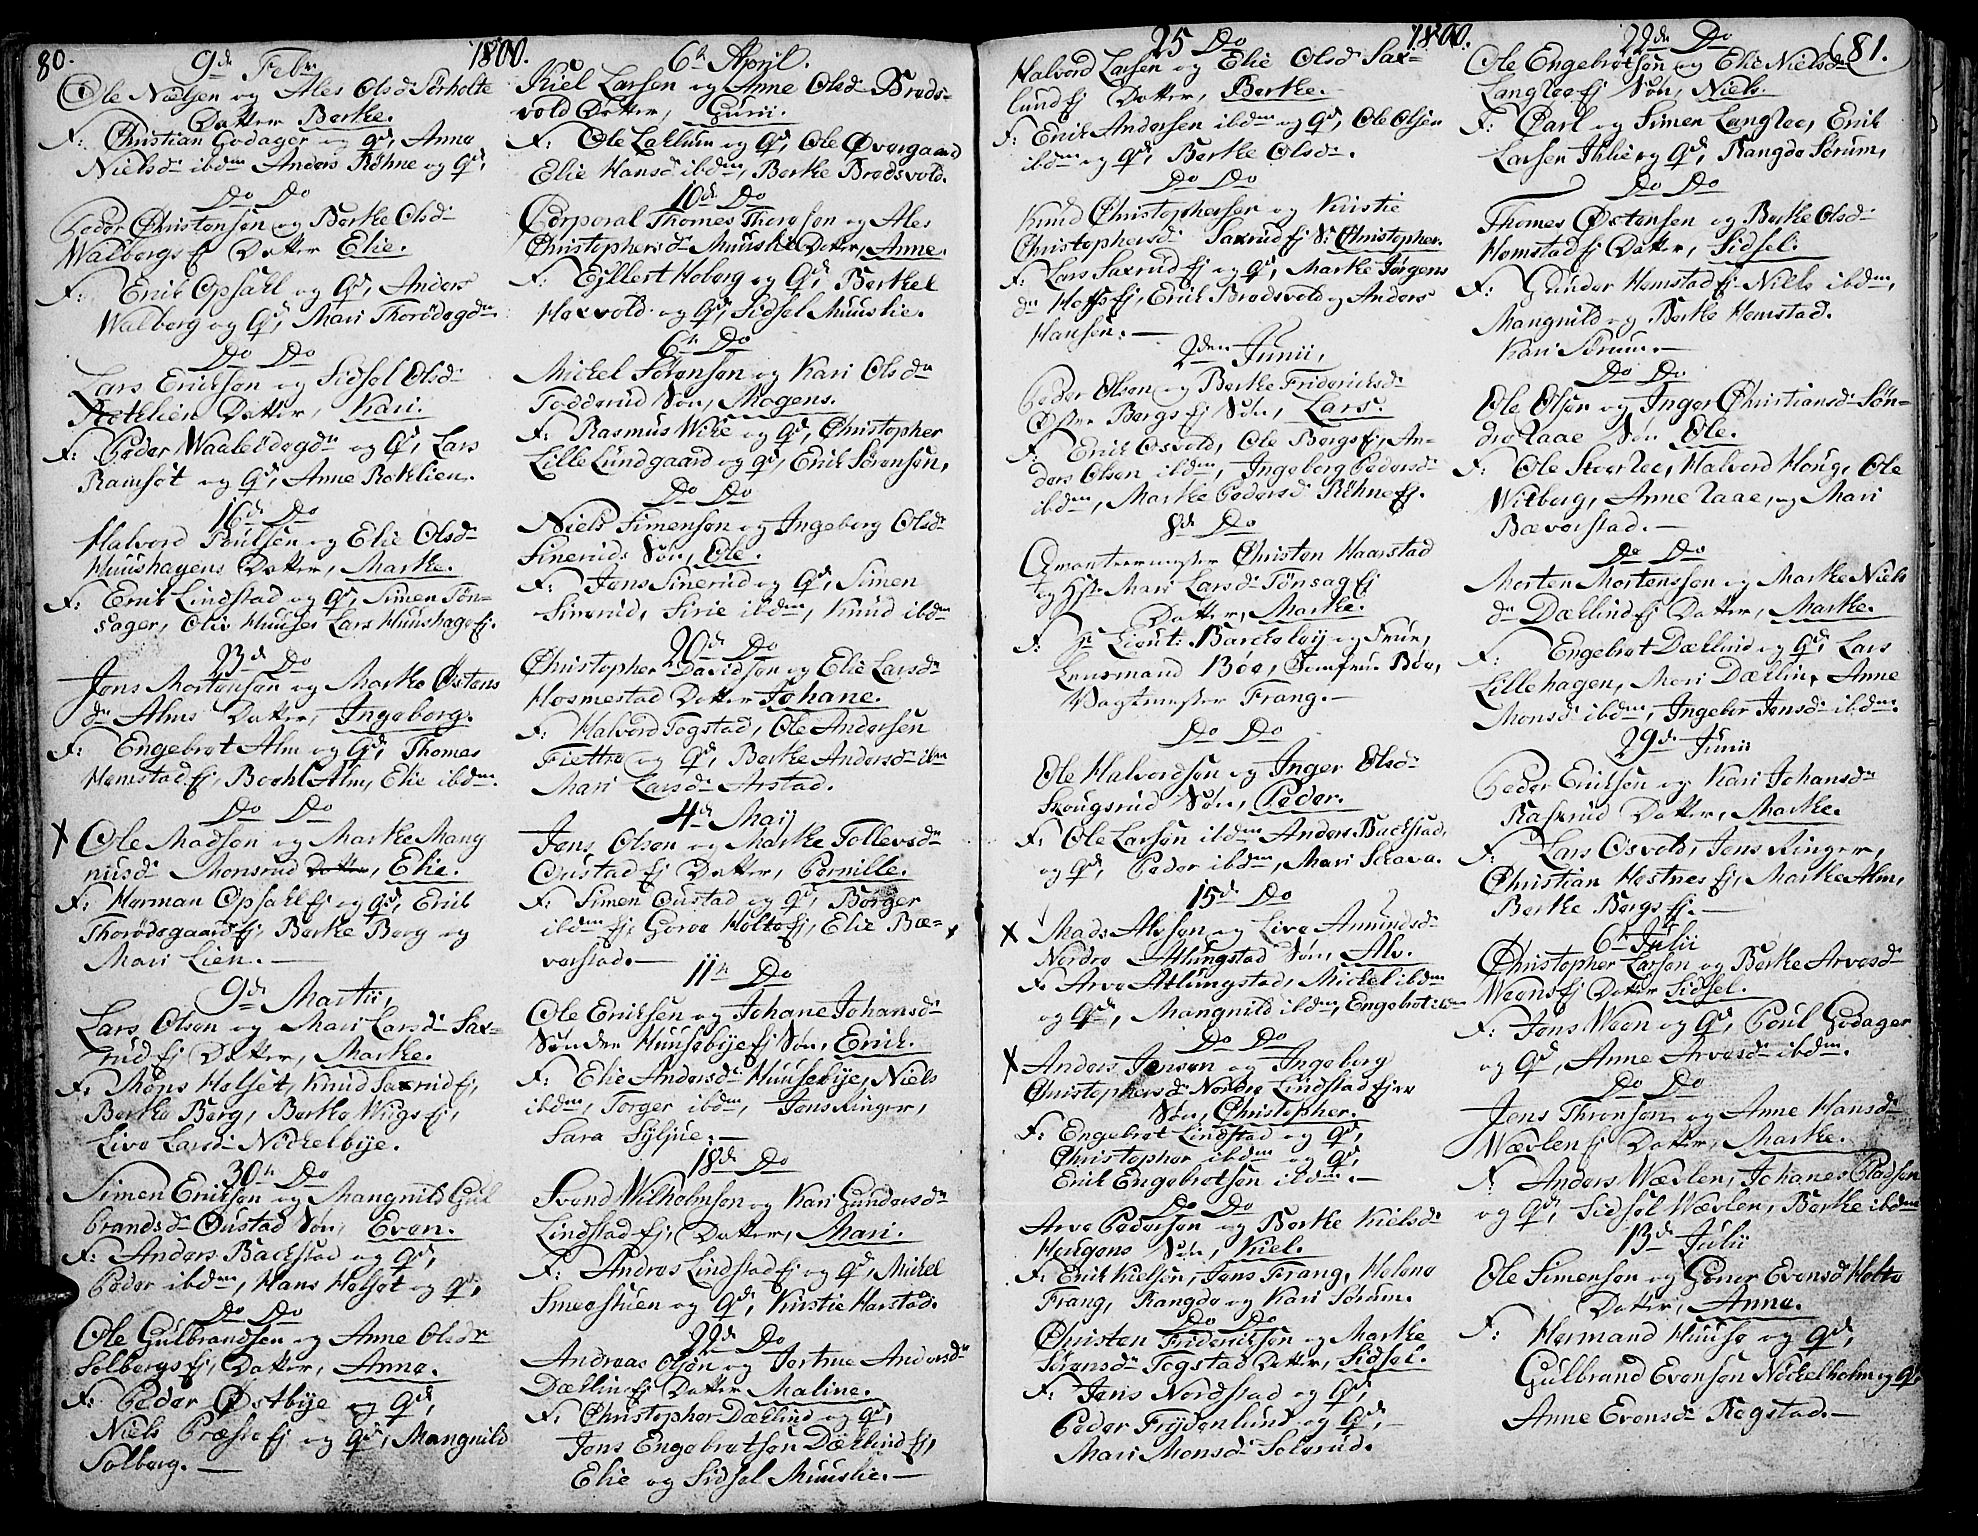 80.
1800.
9de Febr.
Ole Nielsen og Ales Olsdr Sørholte
Datter Berthe.
F: Christian Godager og Qd, Anne
Nielsdr ibdm Anders Røhne og Qd,
Do Do
Peder Christensen og Berthe Olsdr
Walbergs Ej Datter Elie.
F: Erik Opsahl og Qd, Anders
Walberg og Qd, Mari Thorødegdn
Do Do
Lars Erichsen og Sidsel Olsdr
Rothlien Datter, Kari.
F: Peder Waaleødegdn og Qd, Lars
Ramsøt og Qd, Anne Rothlien.
16de Do
Halvord Poulsen og Elie Olsdr
Huushagens Datter, Marthe.
F: Erik Lindstad og Qd, Simen Tøn-
sager, Olia Huuse, Lars Huushage Ej.
23de Do
Jens Mortensen og Marthe Østens
dr Alms Datter, Ingeborg.
F: Engebret Alm og Qd, Thomes
Hemstad Ej, Boehl Alm, Elie ibdm.
Do Do
X Ole Madsen og Marthe Mang
nusdr Monsrud Datter, Elie.
F: Herman Opsahl Ej og Qd, Erik
Thorødegaard Ej, Berthe Berg og
Mari Lien. —
9de Martii,
Lars Olsen og Mari Larsdr Sax-
rud Ej Datter, Marthe.
F: Mons Holset, Knud Saxrud Ej,
Berthe Berg, Berthe Wiigs Ej,
Live Larsdr Nickelbye.
30te Do
Simen Ericksen og Mangnild Gul
brandsdr Oustad Søn, Even.
F: Anders Backstad og Qd,
Peder ibdm, Hans Holset og Qd,
Do Do
Ole Gulbrandsen og Anne Olsdr
Solbergs Ej, Datter, Anne.
F: Peder Østbye og Qd,
Niels Præste Ej og Qd, Mangnild
Solberg. —
6te April.
Kiel Larsen og Anne Olsdr Brøds-
vold Datter, Gurii.
F: Ole Laklum og Qd, Ole Øvergaard
Elie Hansdr ibdm, Berthe Brødsvold.
10de Do
Corporal Thomes Thoresen og Ales
Christophersdr Muuslie Datter, Anne.
F: Ejllert Hoberg og Qd, Berthel
Hexvold og Qd, Sidsel Muuslie.
6te Do
Mickel Sørensen og Kari Olsdr
Todderud Søn, Mogens.
F: Rasmus Wike og Qd, Christopher
Lille Lundgaard og Qd, Erik Sørensen,
Do Do
Niels Simensen og Ingeborg Olsdr
Sinerud Søn, Ole.
F: Jens Sinerud og Qd, Simen
Sinerud, Sirie ibdm, Knud ibdm
20de Do
Christopher Davidsen og Elie Larsdr
Hosmestad Datter Johane.
F: Halvord Togstad, Ole Andersen
Fiettre og Qd, Berthe Andersdr ibm
Mari Larsdr Arstad.
4de Maij
Jens Olsen og Marthe Tollevsdr
Oustad Ej Datter, Pernille.
F: Simen Oustad og Qd, Børger
ibdm Ej, Gorve Holte Ej, Elie Bæ-
verstad. —
11te Do
Ole Ericksen og Johane Johansdr
Sønder Huusebije Ej Søn, Erick.
F: Elie Andersdr Huusebije, Niels
ibdm, Torger ibdm, Jens Ringer,
Sara Syljue. —
18de Do
Svend Wilhelmsen og Kari Gundersdr
Lindstad Ej, Datter, Mari.
F: Andreas Lindstad Ej og Qd, Mickel
Smedstuen og Qd, Kirstie Harstad.
22de Do
Andreas Olsen og Jortrue Andersdr
Dæhlin Ej Datter Maline.
F: Christopher Dæhlind og Qd,
Jens Engebretsen Dæhlind Ej,
Elie og Sidsel Muuslie. —
1800.
25 Do
Halvord Larsen og Elie Olsdr Sax-
lund Ej Datter, Berthe.
F: Erick Andersen ibdm og Qd, Ole Olsen
ibdm og Qd, Berthe Olsdr.
Do Do
Knud Christophersen og Kirstie
Christophersdr Saxrud Ej S: Christopher.
F: Lars Saxrud Ej og Qd, Marthe Jørgens
dr Hoffs Ej, Erick Brødsvold og Anders
Hansen. —
2den Junii,
Peder Olsen og Berthe Fridericksdr
Øster Bergs Ej Søn, Lars.
F: Erick Osvold, Ole Bergs Ej, An-
ders Olsen ibdm, Ingeborg Pedersdr
ibdm, Marthe Pedersdr Røhne Ej.
8de Do
Qvarteermester Christen Haarstad
og Hstr Mari Larsdr Tønsag Ej
Datter, Marthe.
F: Pr Lieut: Barchsleij og Frue,
Lensmand Bøe, Jomfrue Bøe,
Wagtmester Frang. —
Do Do
Ole Halvordsen og Inger Olsdr
Skougsrud Søn, Peder.
F: Ole Larsen ibdm Anders Backstad,
og Qd, Peder ibdm, Mari Scrava.
15de Do
X Mads Alvsen og Live Amundsdr
Nordre Atlungstad Søn, Alv.
F: Arve Atlungstad, Mickel ibdm
og Qd, Mangnild ibdm, Engebret ibdm
Do Do
X Anders Jensen og Ingeborg
Christophersdr Nordre Lindstad Ejer
Søn, Christopher.
F: Engebret Lindstad og Qd,
Christopher ibdm og Qd,
Erik Engebretsen ibdm. —
Do Do
Arve Pedersen og Berthe Kielsdr
Hougens Søn, Kiel.
F: Erick Kielsen, Jens Frang, Helene
Frang, Rangdo og Kari Sørum.
Do Do
Christen Fridericksen og Marthe
Sørensdr Togstad Datter, Sidsel.
F: Jens Nordstad og Qd,
Peder Frydenlund og Qd,
Mari Monsdr Solerud.
81.
22de Do
Ole Engebretsen og Elie Nielsdr
Langløe Ej Søn, Niels.
F: Carl og Simen Langløe, Erik
Larsen Ihlie og Qd, Rangdo Sørum,
Do Do
Thomes Østensen og Berthe Olsdr
Hemstad Ej Datter, Sidsel.
F: Gunder Hemstad Ej. Niels ibdm,
Mangnild og Berthe Hemstad.
Kari Sørum. —
Do Do
Ole Olsen og Inger Christiansdr Søn-
dre Laae Søn Ole.
F: Ole Skerløe, Halvord Houg, Ole
Wilberg, Anne Laae, og Mari
Bæverstad. —
Do Do
Morten Mortensen og Marthe Niels
dr Dæhlind Ej Datter, Marthe.
F: Engebret Dæhlind og Qd, Lars
Lillehagen, Mari Dæhlin, Anne
Monsdr ibdm, Ingebor Jensdr ibdm.
29de Junii
Peder Ericksen og Kari Johansdr
Kaxrud Datter, Marthe.
F: Lars Osvold, Jens Ringer,
Christian Hestnes Ej, Marthe Alm,
Berthe Bergs Ej. —
6te Julii
Christopher Larsen og Berthe Arvesdr
Weens Ej Datter Sidsel.
F: Jens Ween og Qd, Poul Godager
og Qd, Anne Arvesdr ibdm.
Do Do
Jens Thronsen og Anne Hansdr
Wævlen Ej Datter, Marthe.
F: Anders Wævlen, Johanes Pladsen
og Qd, Sidsel Wævlen, Berthe ibdm
13de Julii
Ole Simensen og Goner Evensdr Holte
Datter, Anne.
F: Hermand Huuse og Qd,
Gulbrand Evensen Nickelholm og Qd,
Anne Evensdr Rogstad. —